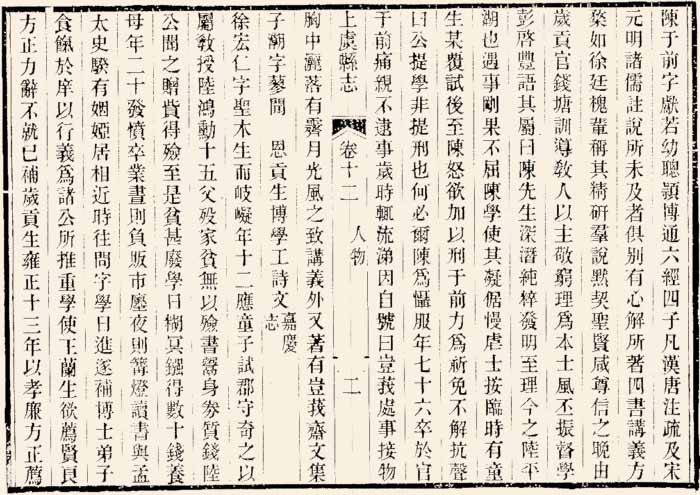 陳于前字獻若幼聰頴博通六經四子凡漢唐注疏及宋
元明諸儒註說所未及者俱别有心解所著四書講義方
桀如徐廷槐輩稱其精研羣說默契聖賢咸尊信之晚由
歲貢官錢塘訓導敎人以主敬窮理爲本士風丕振督學
彭啓豐語其屬曰陳先生深潛純粹發明至理今之陸平
湖也遇事剛果不屈陳學使其凝倨慢虐士按臨時有童
生某覆試後至陳怒欲加以刑于前力爲祈免不解抗聲
曰公提學非提刑也何必爾陳爲懾服年七十六卒於官
于前痛親不逮事歲時輒流涕因自號曰豈莪處事接物
上虞縣志 卷十二 人物 二
胸中灑落有霽月光風之致講義外又著有豈莪齋文集
子潮字蓼聞 恩貢生博學工詩文嘉慶志
徐宏仁字聖木生而岐嶷年十二應童子試郡守奇之以
屬敎授陸鴻勳十五父歿家貧無以殮書鬻身劵質錢陸
公聞之賵貲得殮至是貧甚廢學日糊冥鏹得數十錢養
母年二十發憤卒業晝則負販市廛夜則篝燈讀書與孟
太史騤有姻婭居相近時往問字學日進遂補博士弟子
食餼於庠以行義爲諸公所推重學使王蘭生欲薦賢良
方正力辭不就已補歲貢生雍正十三年以孝廉方正薦